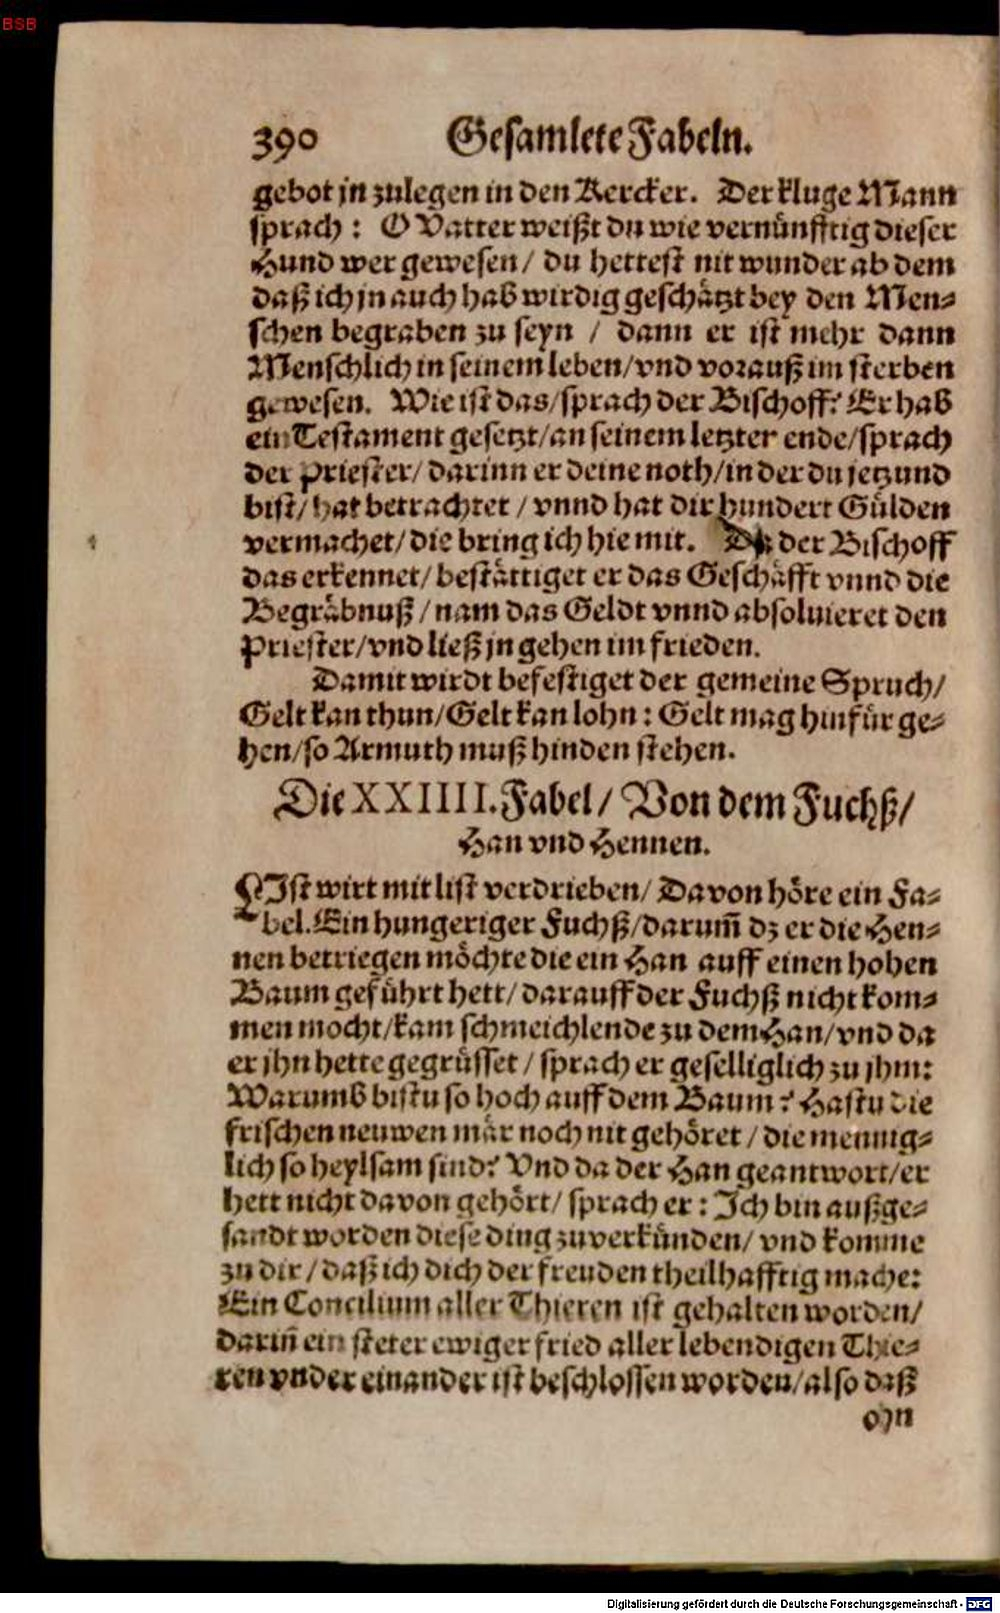 BSB
390 Gesamlete Fabeln.
gebot jn zulegen in den Kercker. Der kluge Mann
sprach: O Vatter weißt du wie vernünfftig dieser
Hund wer gewesen/ du hettest nit wunder ab dem
daß ich jn auch hab wirdig geschätzt bey den Men-
schen begraben zu seyn / dann er ist mehr dann
Menschlich in seinem leben/vnd vorauß im sterben
gewesen. Wie ist das/sprach der Bischoff? Er hab
ein Testament gesetzt/an seinem letzter ende/sprach
der Priester/ darinn er deine noth/in der du jetzund
bist/ hat betrachtet / vnnd hat dir hundert Gülden
vermachet/ die bring ich hie mit. Da der Bischoff
das erkennet/ bestättiget er das Geschäfft vnnd die
Begräbnuß / nam das Geldt vnnd absoluieret den
Priester/vnd ließ jn gehen im frieden.
Damit wirdt befestiget der gemeine Spruch/
Gelt kan thun/Gelt kan lohn: Gelt mag hinfür ge-
hen/so Armuth muß hinden stehen.
Die XXIIII. Fabel/ Von dem Fuchß/
Han vnd Hennen.
LIst wirt mit list verdrieben/ Davon höre ein Fa-
bel. Ein hungeriger Fuchß/darum̃ dz er die Hen-
nen betriegen möchte die ein Han auff einen hohen
Baum geführt hett/ darauff der Fuchß nicht kom-
men mocht/kam schmeichlende zu dem Han/vnd da
er jhn hette gegrüsset / sprach er geselliglich zu jhm:
Warumb bistu so hoch auff dem Baum? Hastu die
frischen neuwen mär noch nit gehöret / die mennig-
lich so heylsam sind? Vnd da der Han geantwort/er
hett nicht davon gehört/ sprach er: Ich bin außge-
sandt worden diese ding zuverkünden/ vnd komme
zu dir / daß ich dich der freuden theilhafftig mache:
Ein Concilium aller Thieren ist gehalten worden/
darin̄ ein steter ewiger fried aller lebendigen Thie-
ren vnder einander ist beschlossen worden/also daß
ohn
Digitalisierung gefördert durch die Deutsche Forschungsgemeinschaft - DFG